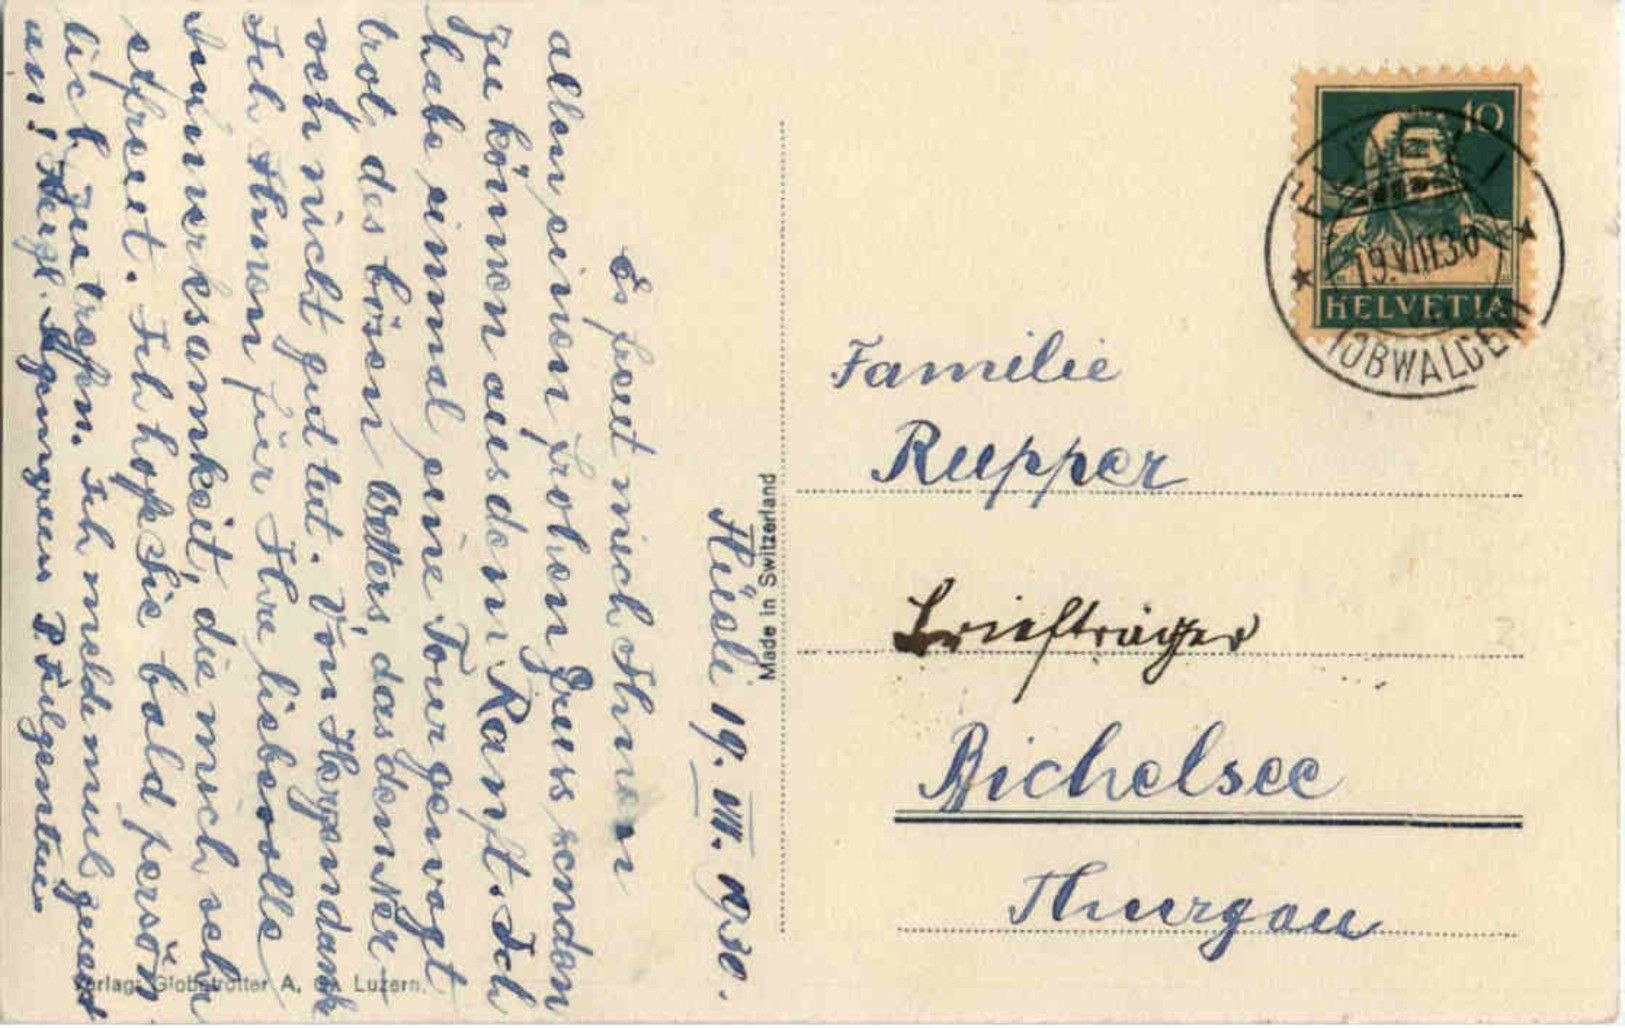 Flüeli 19. VIII. 1930.
Es freut mich Ihnen
allen einen frohen Gruss senden
zu können aus dem Ranft. Ich
habe einmal eine Tour gewagt
trotz des bösen Wetters, das den Ner-
ven nicht gut tut. Von Herzen dank
Ich Ihnen für Ihre liebevolle
Aufmerksamkeit, die mich sehr
erfreut. Ich hoffe Sie bald persön
lich zu treffen. Ich melde mich zuerst
an! Herzl. Ihr P. Fulgentius
Made in Switzerland
Verlag: Globetrotter A. G. Luzern.
10
HELVETIA
FLÜELI
19.VIII.30
(OBWALDEN)
Familie
Rupper
Briefträger
Bichelsee
Thurgau